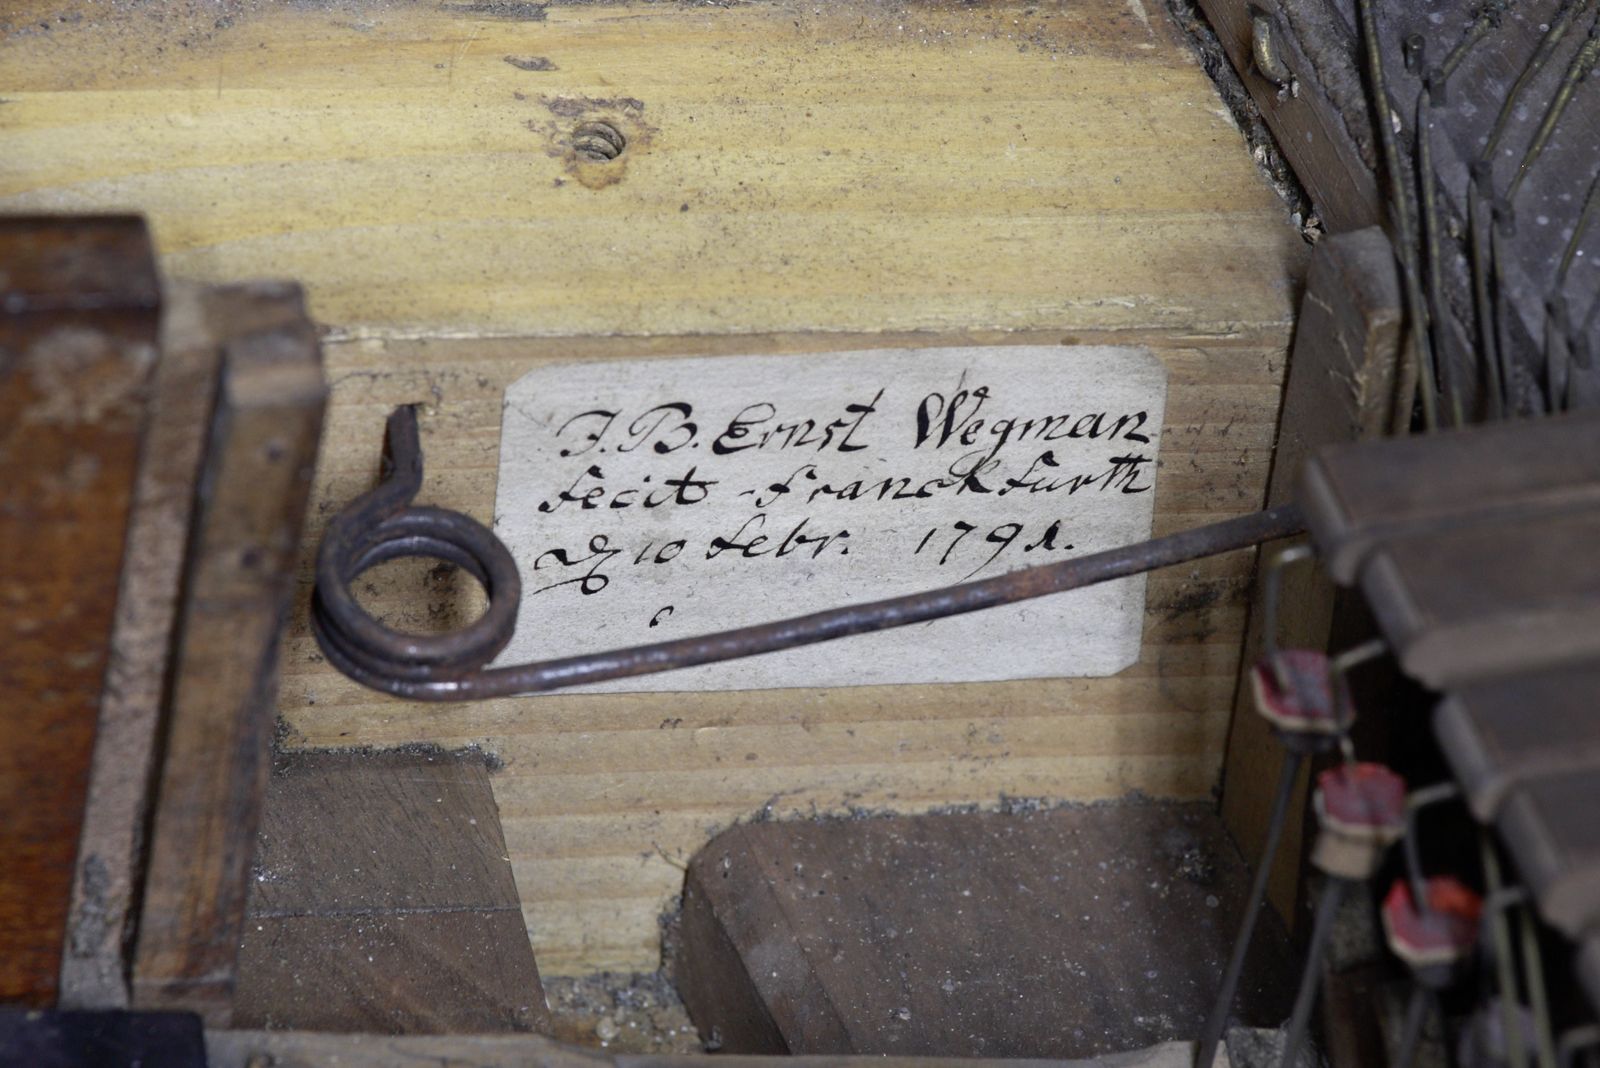 J. B. Ernst Wegman
fecit franckfurth
10 febr. 1791.